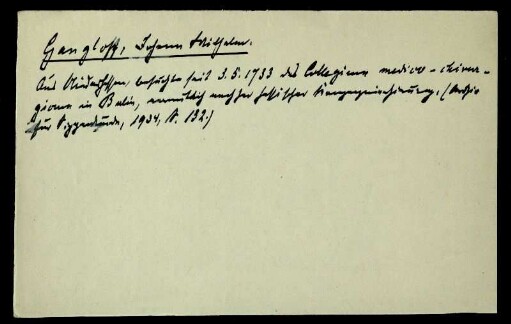 Gangloff, Johann Wilhelm.
Aus besuchte seit 3.5.1733 das Collegium medico-chirur-
gicum in Berlin, vermutlich nach der hessischer (Archiv
für Sippenkunde, 1934, S. 132.)